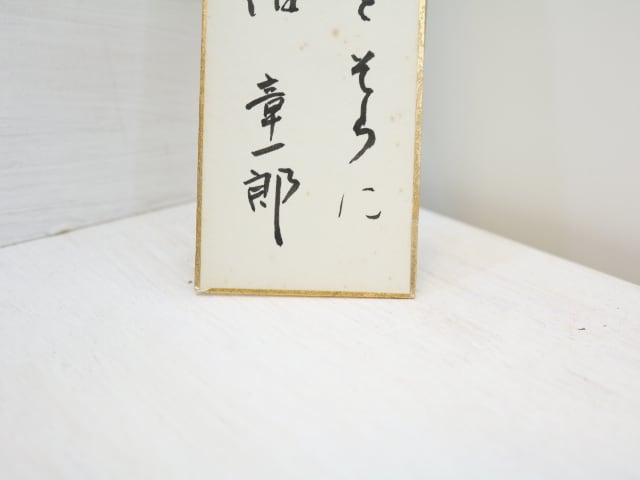 とそらに
章一郎